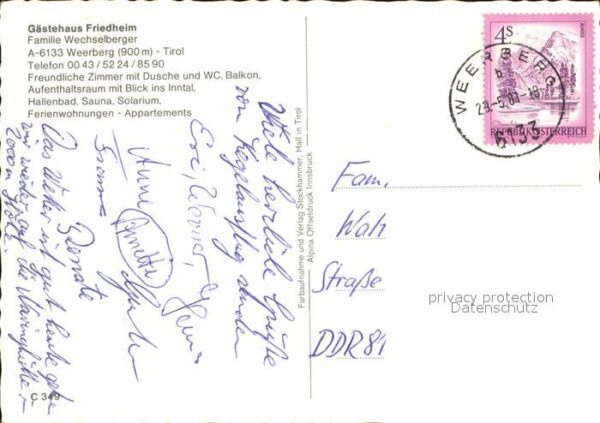 Gästehaus Friedheim
Familie Wechselberger
A-6133 Weerberg (900 m) - Tirol
Telefon 00 43 / 52 24 / 85 90
Freundliche Zimmer mit Dusche und WC, Balkon,
Aufenthaltsraum mit Blick ins Inntal,
Hallenbad, Sauna, Solarium,
Ferienwohnungen - Appartements
Viele herzliche Grüße
vom Kegelausflug senden
Evi, Werner,
Anni
Annette
Renate
Das Wetter ist gut heute gehen
wir wieder auf die
2000 m Höhe.
C 349
Farbaufnahme und Verlag Stockhammer, Hall in Tirol
Alpina Offsetdruck Innsbruck
4S
REPUBLIK ÖSTERREICH
WEERBERG
6133
Fam.
Straße
DDR 81
privacy protection
Datenschutz